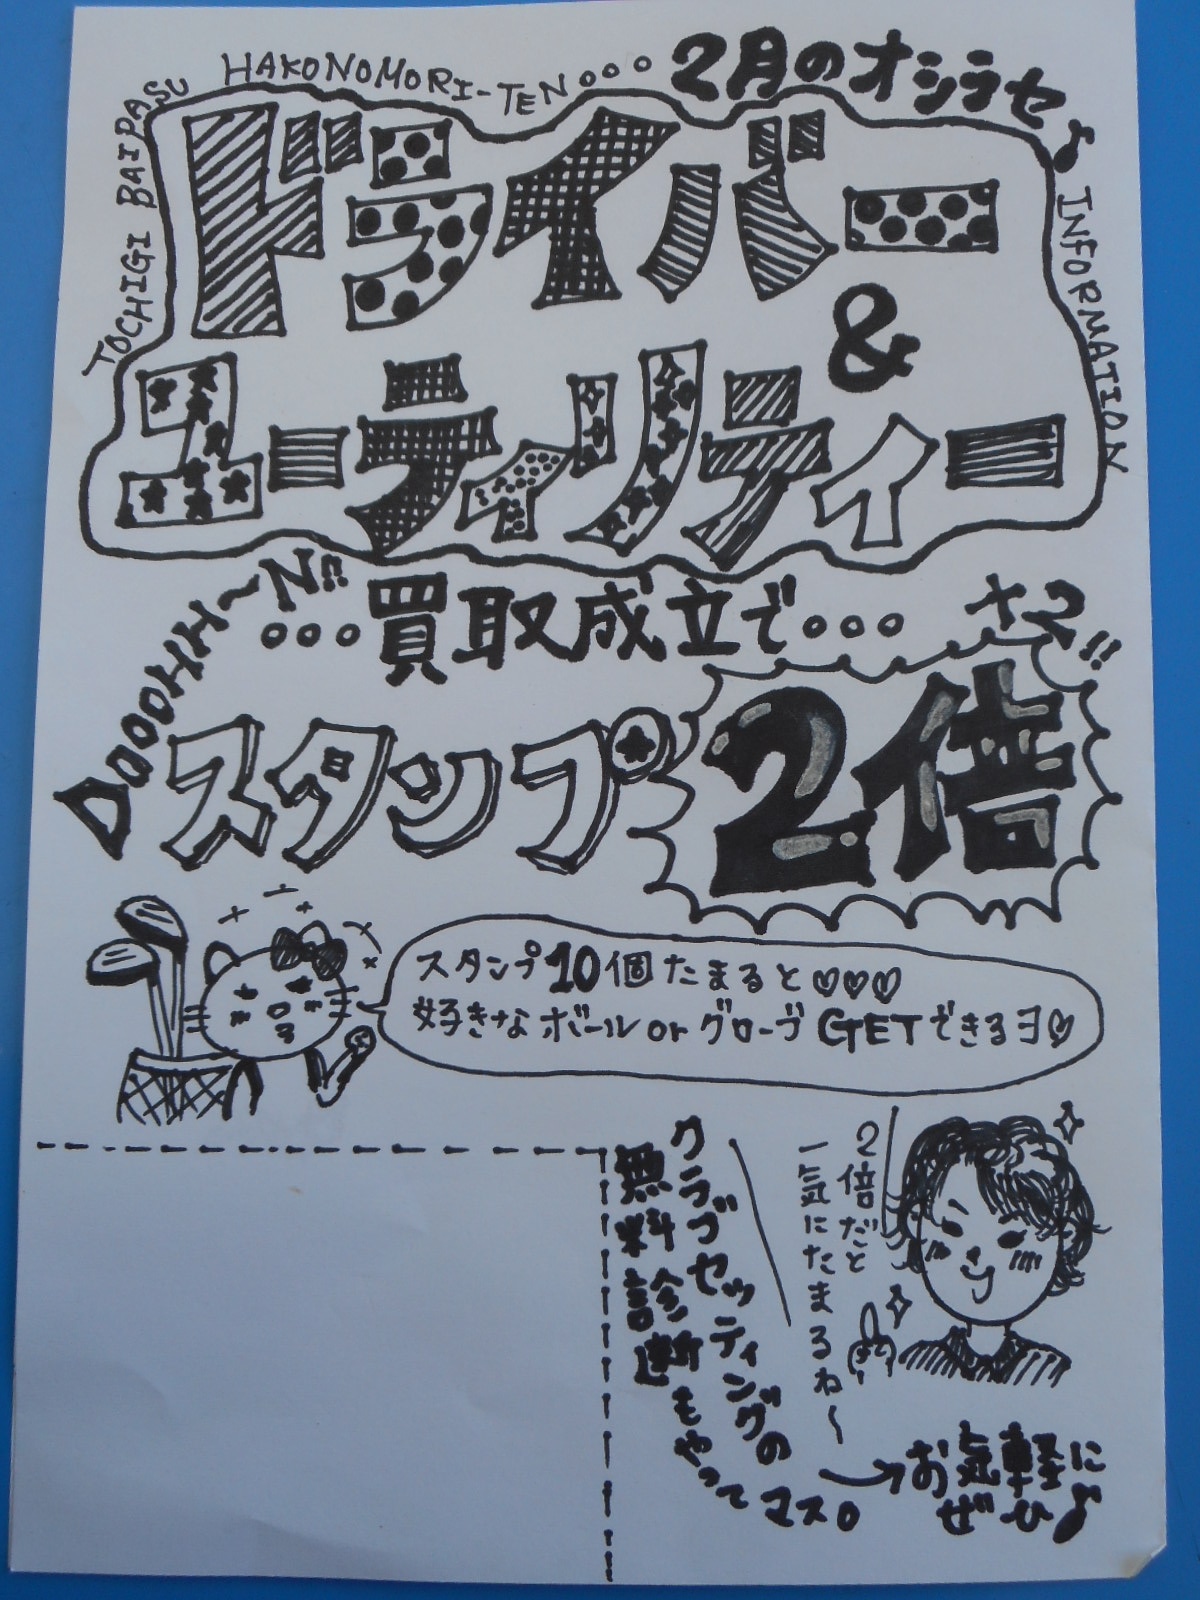 TOCHIGI BAIPASU
HAKONOMORI-TEN。。。
2月のオシラセ♪
INFORMATION
ドライバー
&
ユーティリティー
DOOOHH〜N!!
。。。買取成立で。。。
スタンプ
2倍
スタンプ10個たまると♡♡♡
好きなボールorグローブGETできるヨ♡
2倍だと
一気にたまるね〜
クラブセッティングの
無料診断もやってマス。
→お気軽に
ぜひ♪